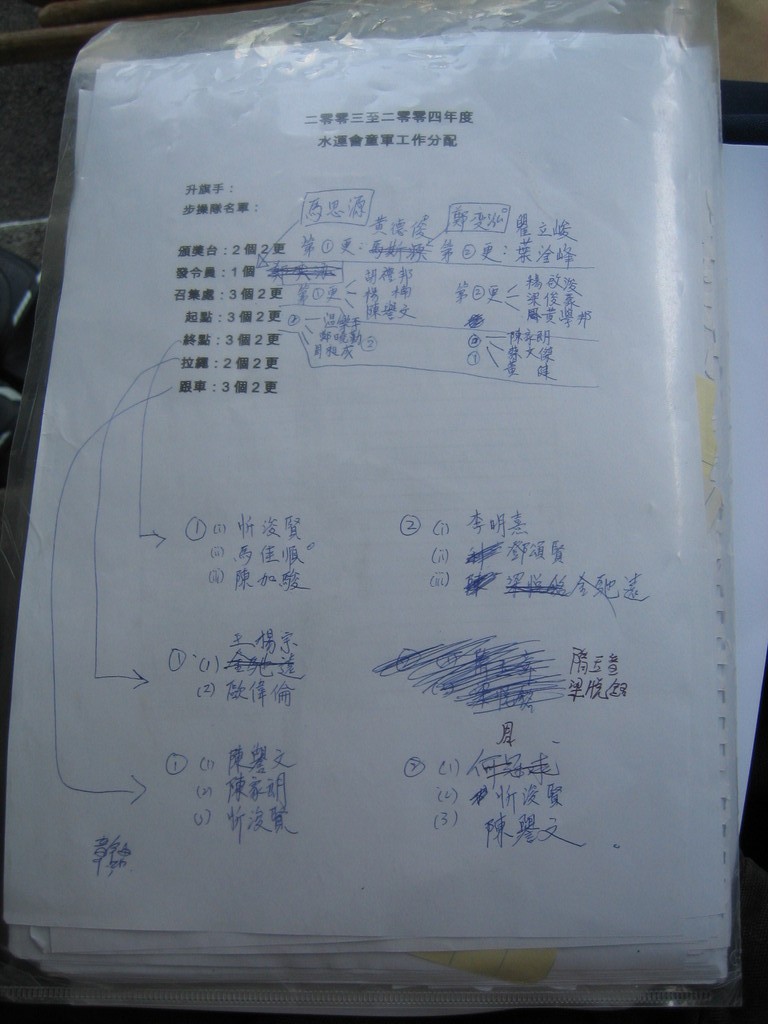 二零零三至二零零四年度
水運會童軍工作分配
升旗手：
步操隊名單：
馬思源
鄭奕泓
黃德俊
瞿立峻
頒獎台：2個2更 第①更：馬斯源 第②更：葉淦峰
發令員：1個
召集處：3個2更 第①更 胡禮邦
楊楠
陳譽文
第②更 楊啟浚
梁俊嘉
黃學邦
起點：3個2更
終點：3個2更
② 陳家朗
① 蔡文傑
黃健
拉繩：2個2更
跟車：3個2更
① (i) 忻浚賢
(ii) 馬佳順
(iii) 陳加駿
② (i) 李明熹
(ii) 鄧頌賢
(iii) 金馳遠
王楊宗
① (1) 金馳遠
(2) 歐偉倫
梁悅鎔
① (1) 陳譽文
(2) 陳家朗
(3) 忻浚賢
② (1) 何冠
(2) 忻浚賢
(3) 陳譽文